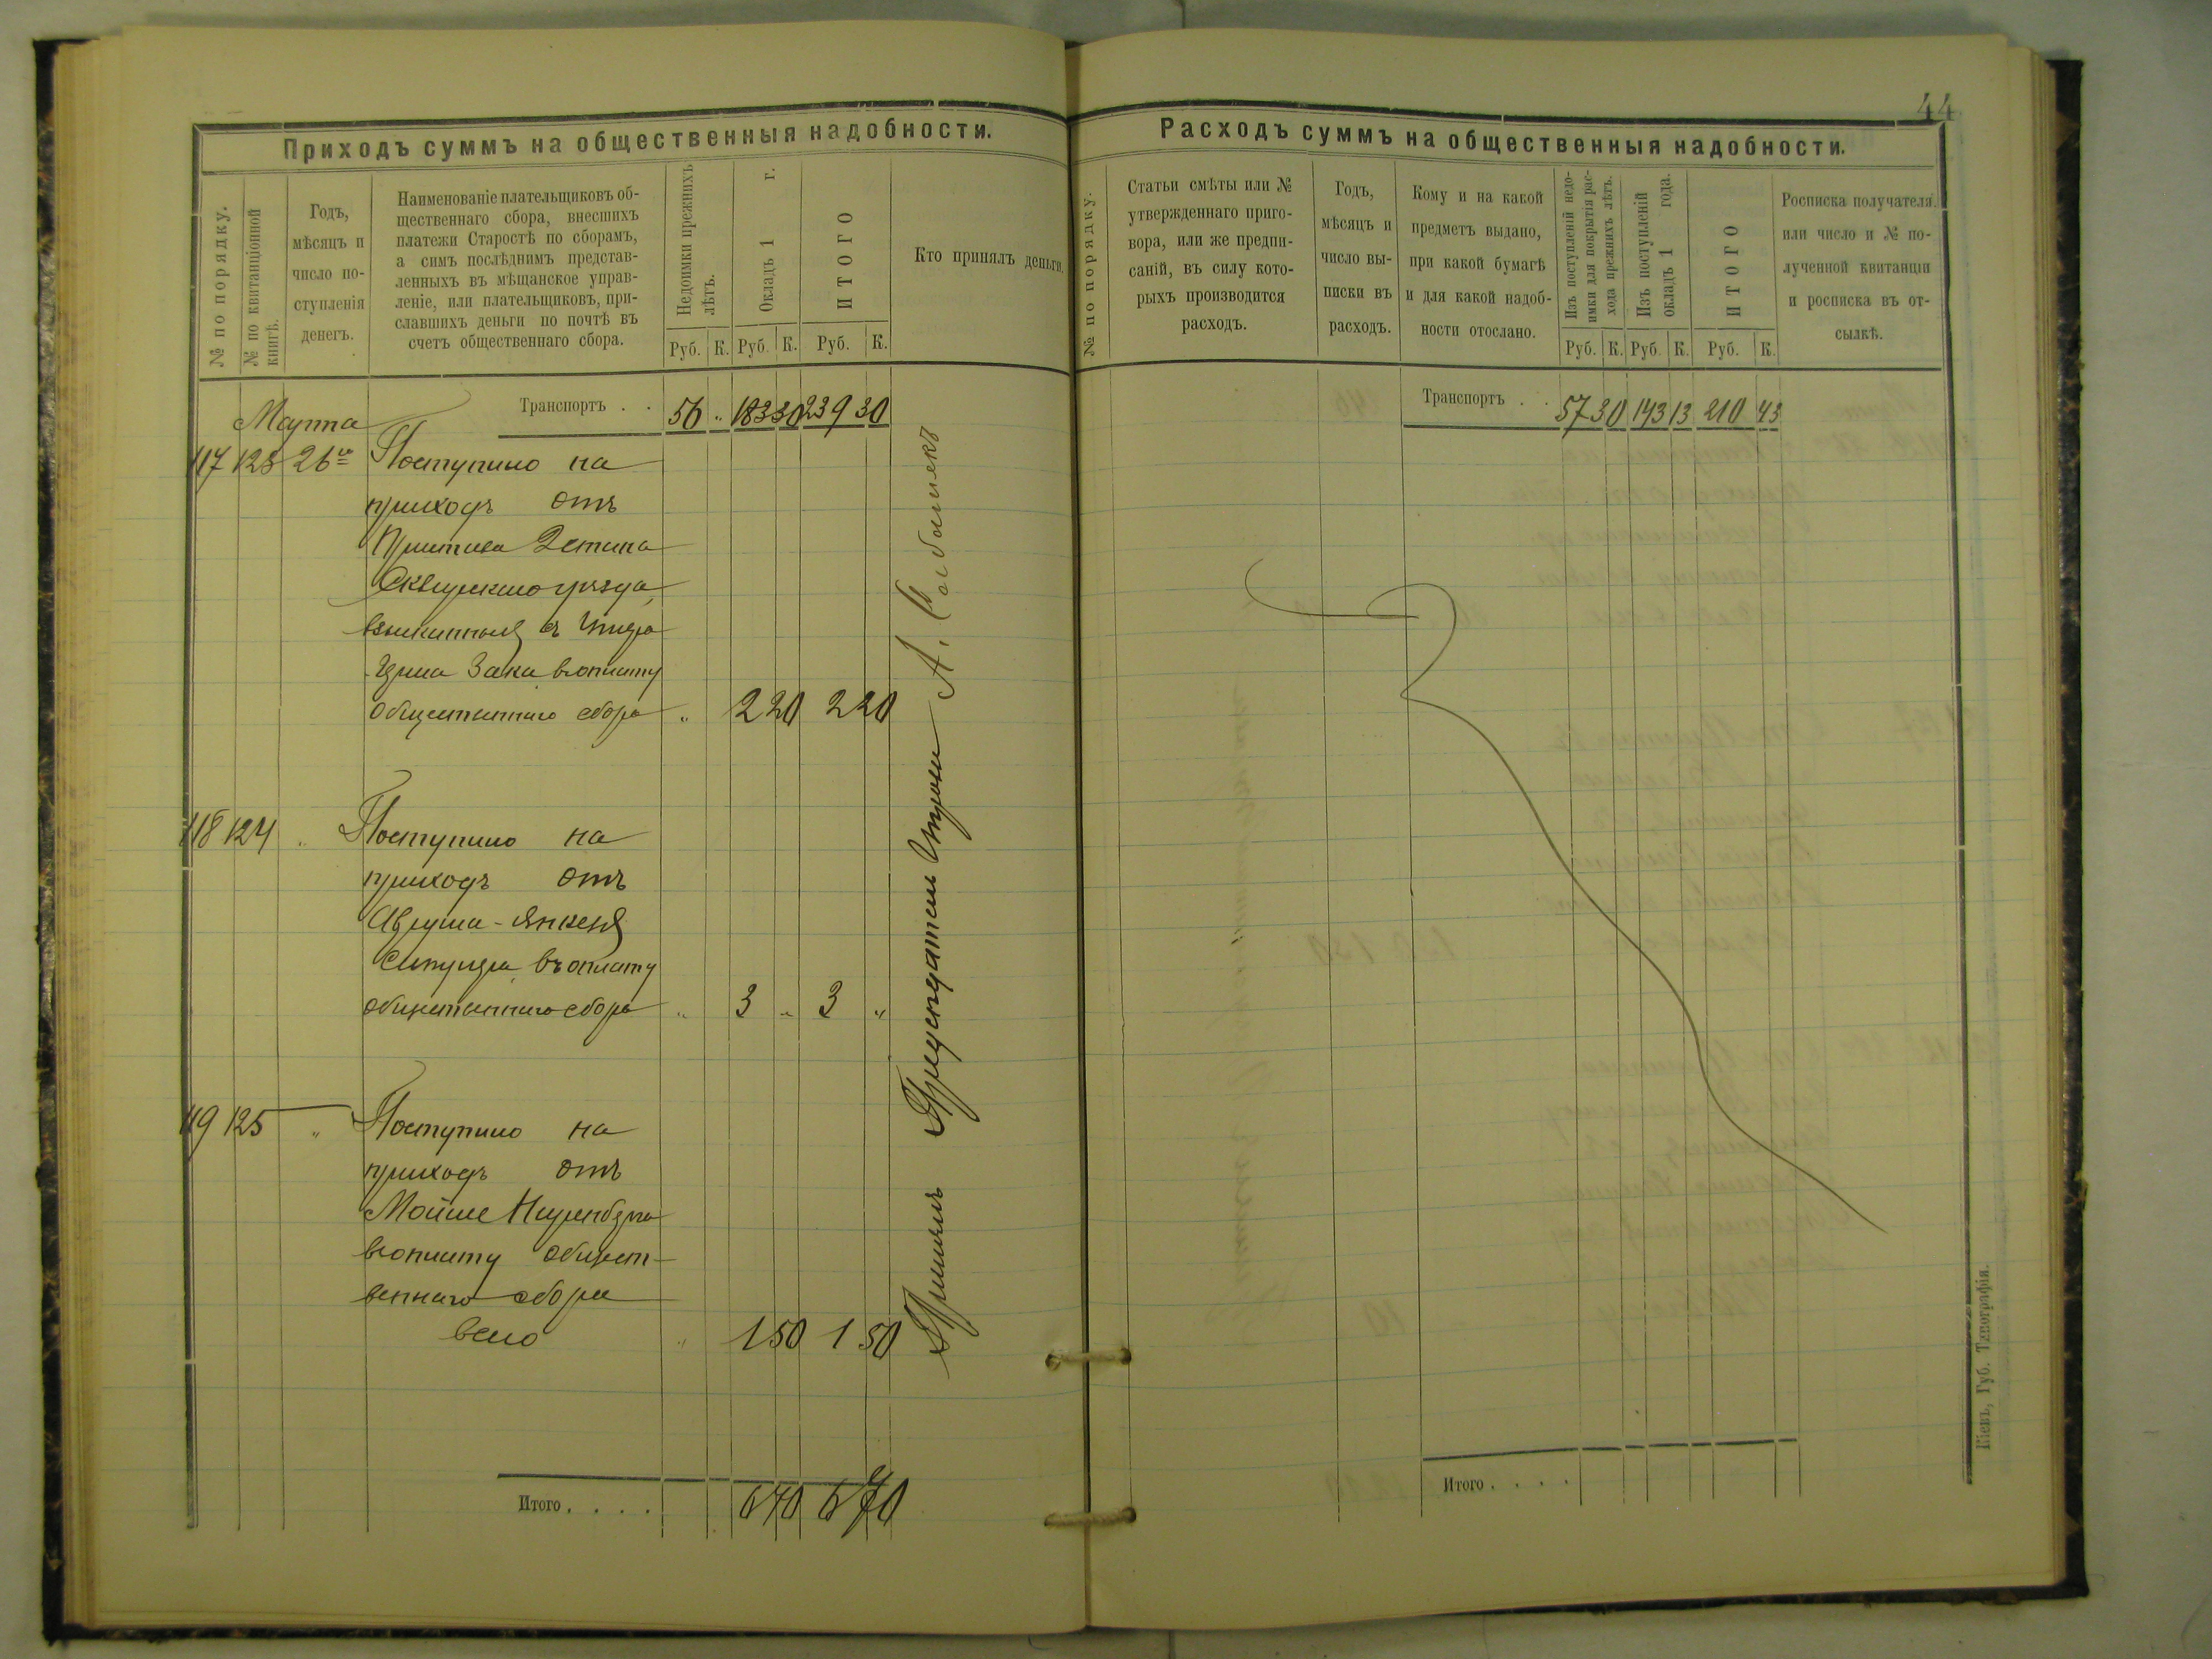 44
Приходъ суммъ на общественныя надобности.
№ по порядку.
№ по квитанціонной
книгѣ.
Годъ,
мѣсяцъ и
число по-
ступленія
денегъ.
Наименованіе плательщиковъ об-
щественнаго сбора, внесшихъ
платежи Старостѣ по сборамъ,
а симъ послѣднимъ представ-
ленныхъ въ мѣщанское управ-
леніе, или плательщиковъ, при-
славшихъ деньги по почтѣ въ
счетъ общественнаго сбора.
Недоимки прежнихъ
лѣтъ.
Окладъ 1 г.
ИТОГО
Кто принялъ деньги.
Руб. К. Руб. К. Руб. К.
Транспортъ . . 56 „ 183 30 239 30
Марта
117 123 26го Поступило на
приходъ отъ
Пристава 2 стана
Сквирскаго уѣзда,
взысканныя съ
Зака въ оплату
общественнаго сбора „ 2 20 2 20
118 124 „ Поступило на
приходъ отъ
Аврума-Янкеля
въ оплату
общественнаго сбора „ 3 „ 3 „
119 125 „ Поступило на
приходъ отъ
Мойше
въ оплату общест-
веннаго сбора
всего „ 1 50 1 50
Итого . . . . 6 70 6 70
Принялъ Предсѣдатель Управы А.
Расходъ суммъ на общественныя надобности.
№ по порядку.
Статьи смѣты или №
утвержденнаго приго-
вора, или же предпи-
саній, въ силу кото-
рыхъ производится
расходъ.
Годъ,
мѣсяцъ и
число вы-
писки въ
расходъ.
Кому и на какой
предметъ выдано,
при какой бумагѣ
и для какой надоб-
ности отослано.
Изъ поступленій недо-
имки для покрытія рас-
хода прежнихъ лѣтъ.
Изъ поступленій
окладъ 1 года.
ИТОГО
Росписка получателя.
или число и № по-
лученной квитанціи
и росписка въ от-
сылкѣ.
Руб. К. Руб. К. Руб. К.
Транспортъ . . 57 30 143 13 210 43
Итого . . . .
Кіевъ, Губ. Типографія.